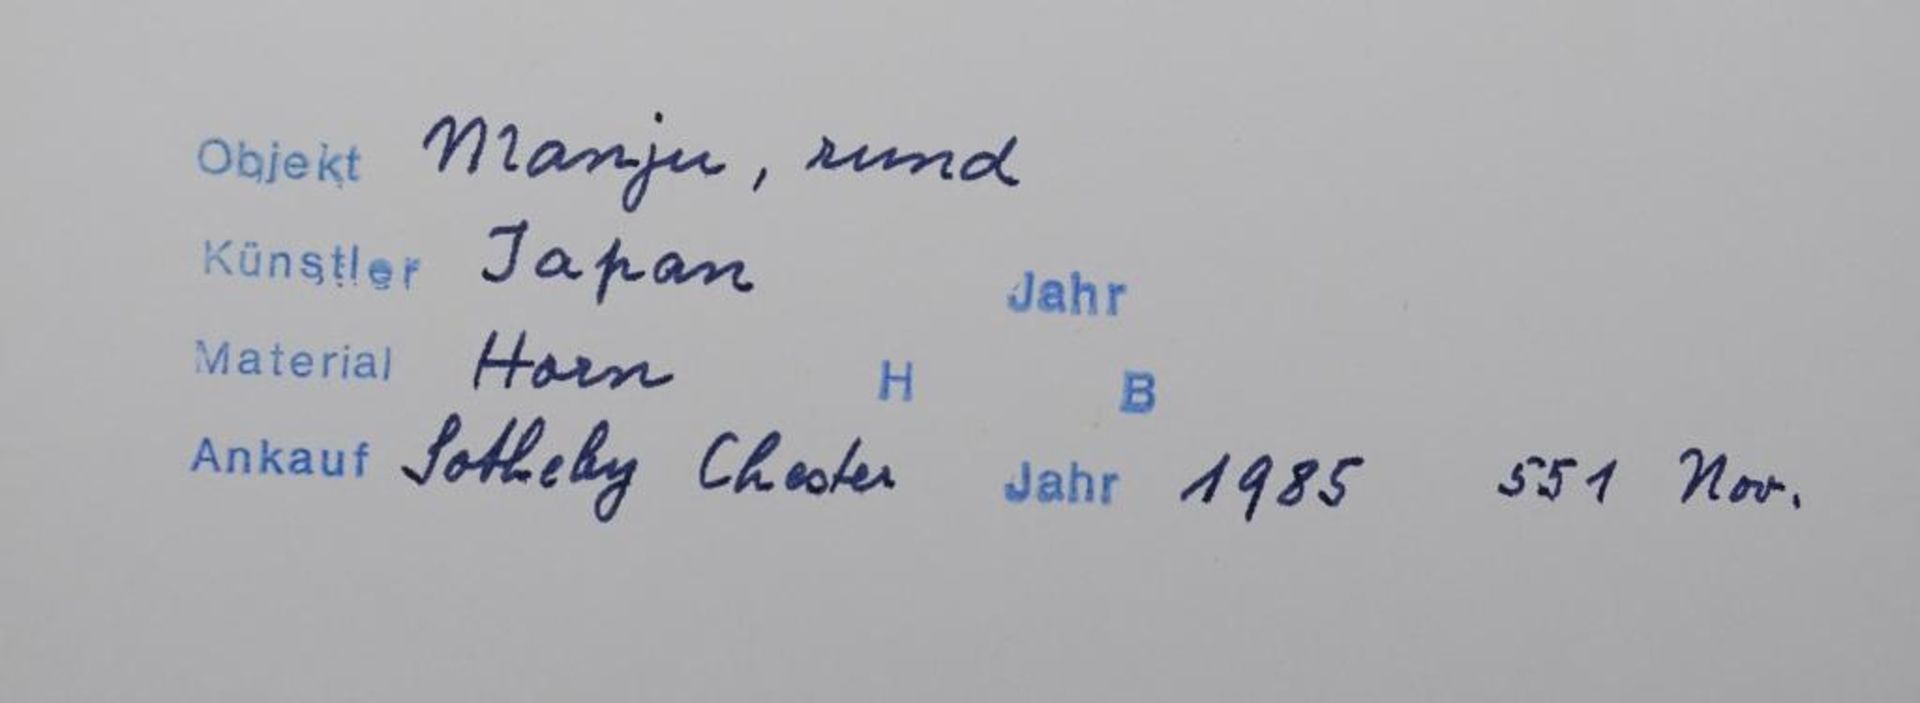 Objekt Manju, rund
Künstler Japan Jahr
Material Horn H B
Ankauf Sotheby Chester Jahr 1985 551 Nov.